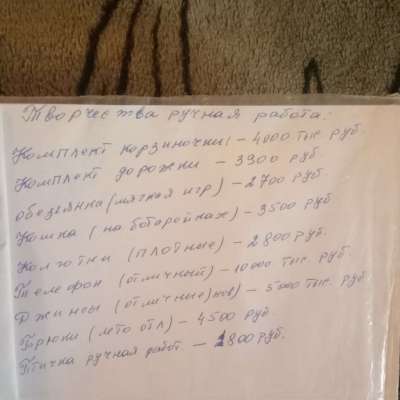 Творчества ручная работа:
Комплект корзиночки - 4000 тыс. руб.
Комплект дорожки - 3900 руб.
обезьянка (мягкая игр) - 2700 руб
Кошка (на батарейках) - 3500 руб.
Колготки (плотные) - 2800 руб.
Телефон (отличный) - 10000 тыс. руб.
Джинсы (отличные) нов) - 5000 тыс. руб
Брюки (лето отл) - 4500 руб.
Птичка ручная работ. - 1800 руб.